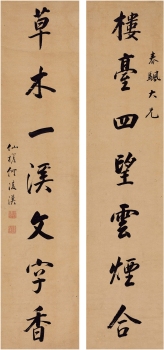 樓臺四望雲煙合
春颿大兄
草木一溪文字香
仙槎何凌漢